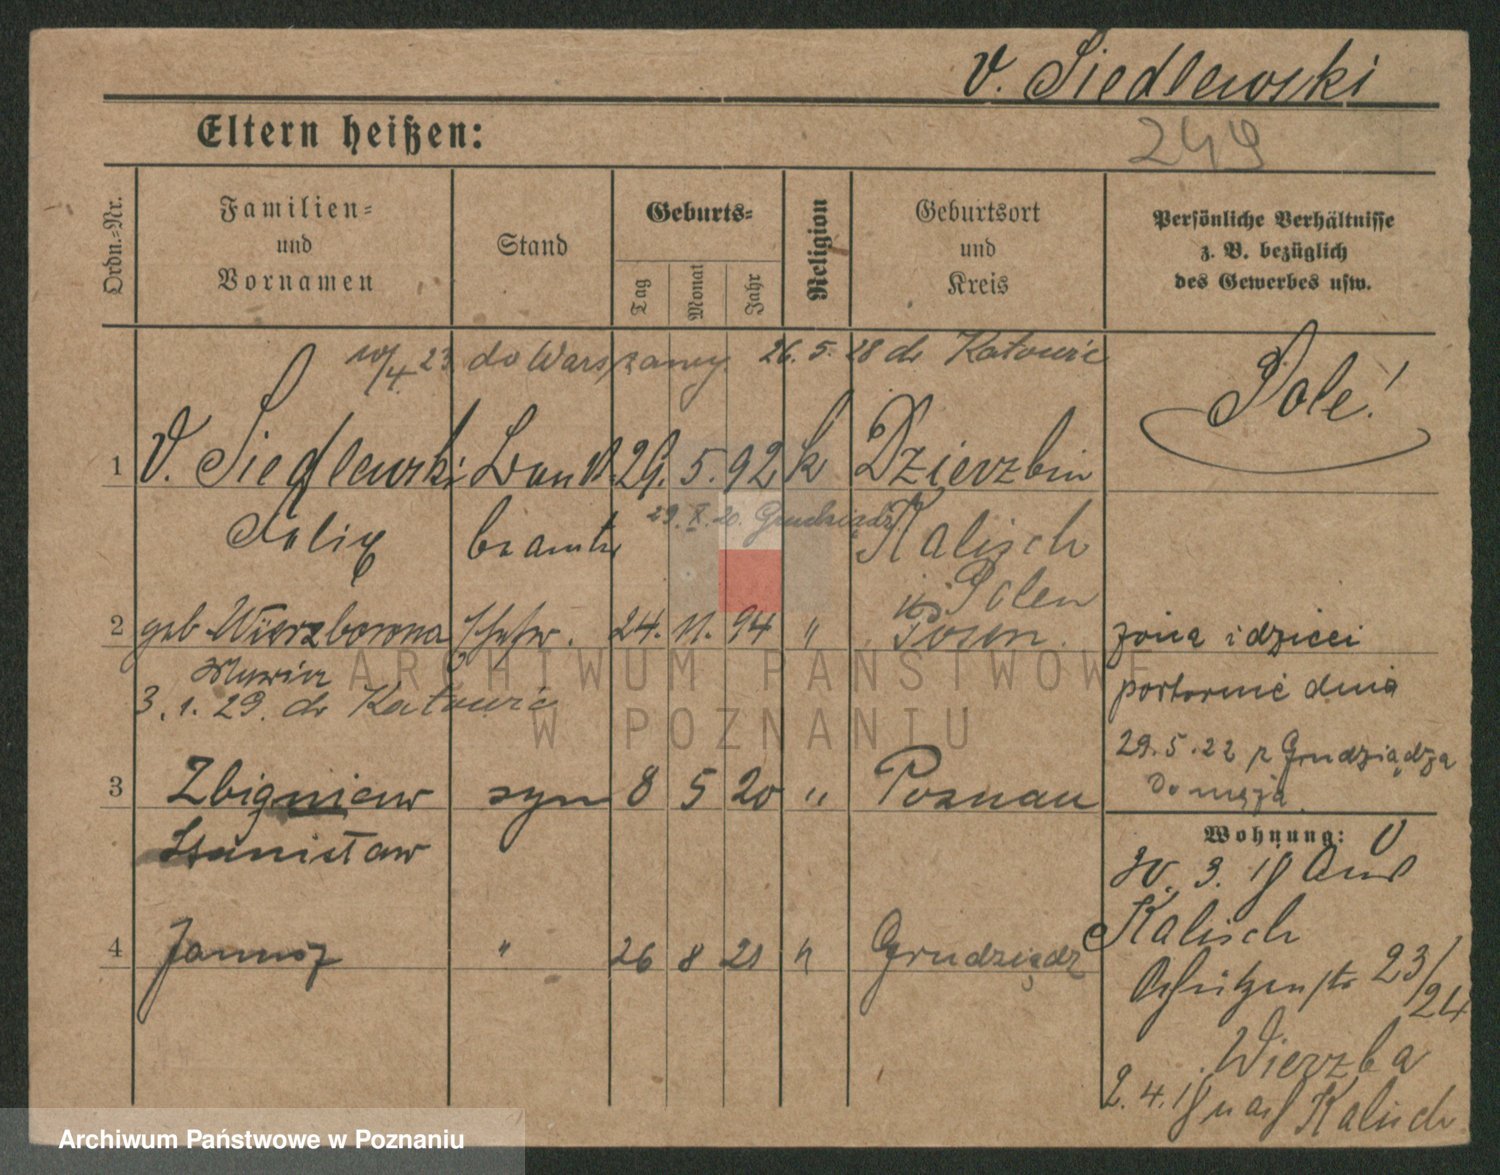 v. Siedlewski
Eltern heißen:
249
Ordn.=Nr.
Familien=
und
Vornamen
Stand
Geburts=
Tag
Monat
Jahr
Religion
Geburtsort
und
Kreis
Persönliche Verhältnisse
z. B. bezüglich
des Gewerbes usw.
10/4 23 do Warszawy 26. 5. 28 do Katowic
Pole!
1 v. Siedlewski 29. 5. 92 k Dzierzbin
Felix beamter 29. X. 20. Grudziądz Kalisch
Polen
2 geb Wierzbowna Ehefr. 24. 11. 94 " Posen
żona i dzieci
Maria
3. 1. 29. do Katowic
powrócić dnia
29. 5. 22 z Grudziądza
do męża.
3 Zbigniew syn 8 5 20 " Poznań
Stanisław
Wohnung:
30. 3. 19 aus
Kalisch
4 Janusz " 26 8 21 " Grudziądz
Schützenstr 23/24
Wierzba
2. 4. 19 nach Kalisch
ARCHIWUM PAŃSTWOWE
W POZNANIU
Archiwum Państwowe w Poznaniu